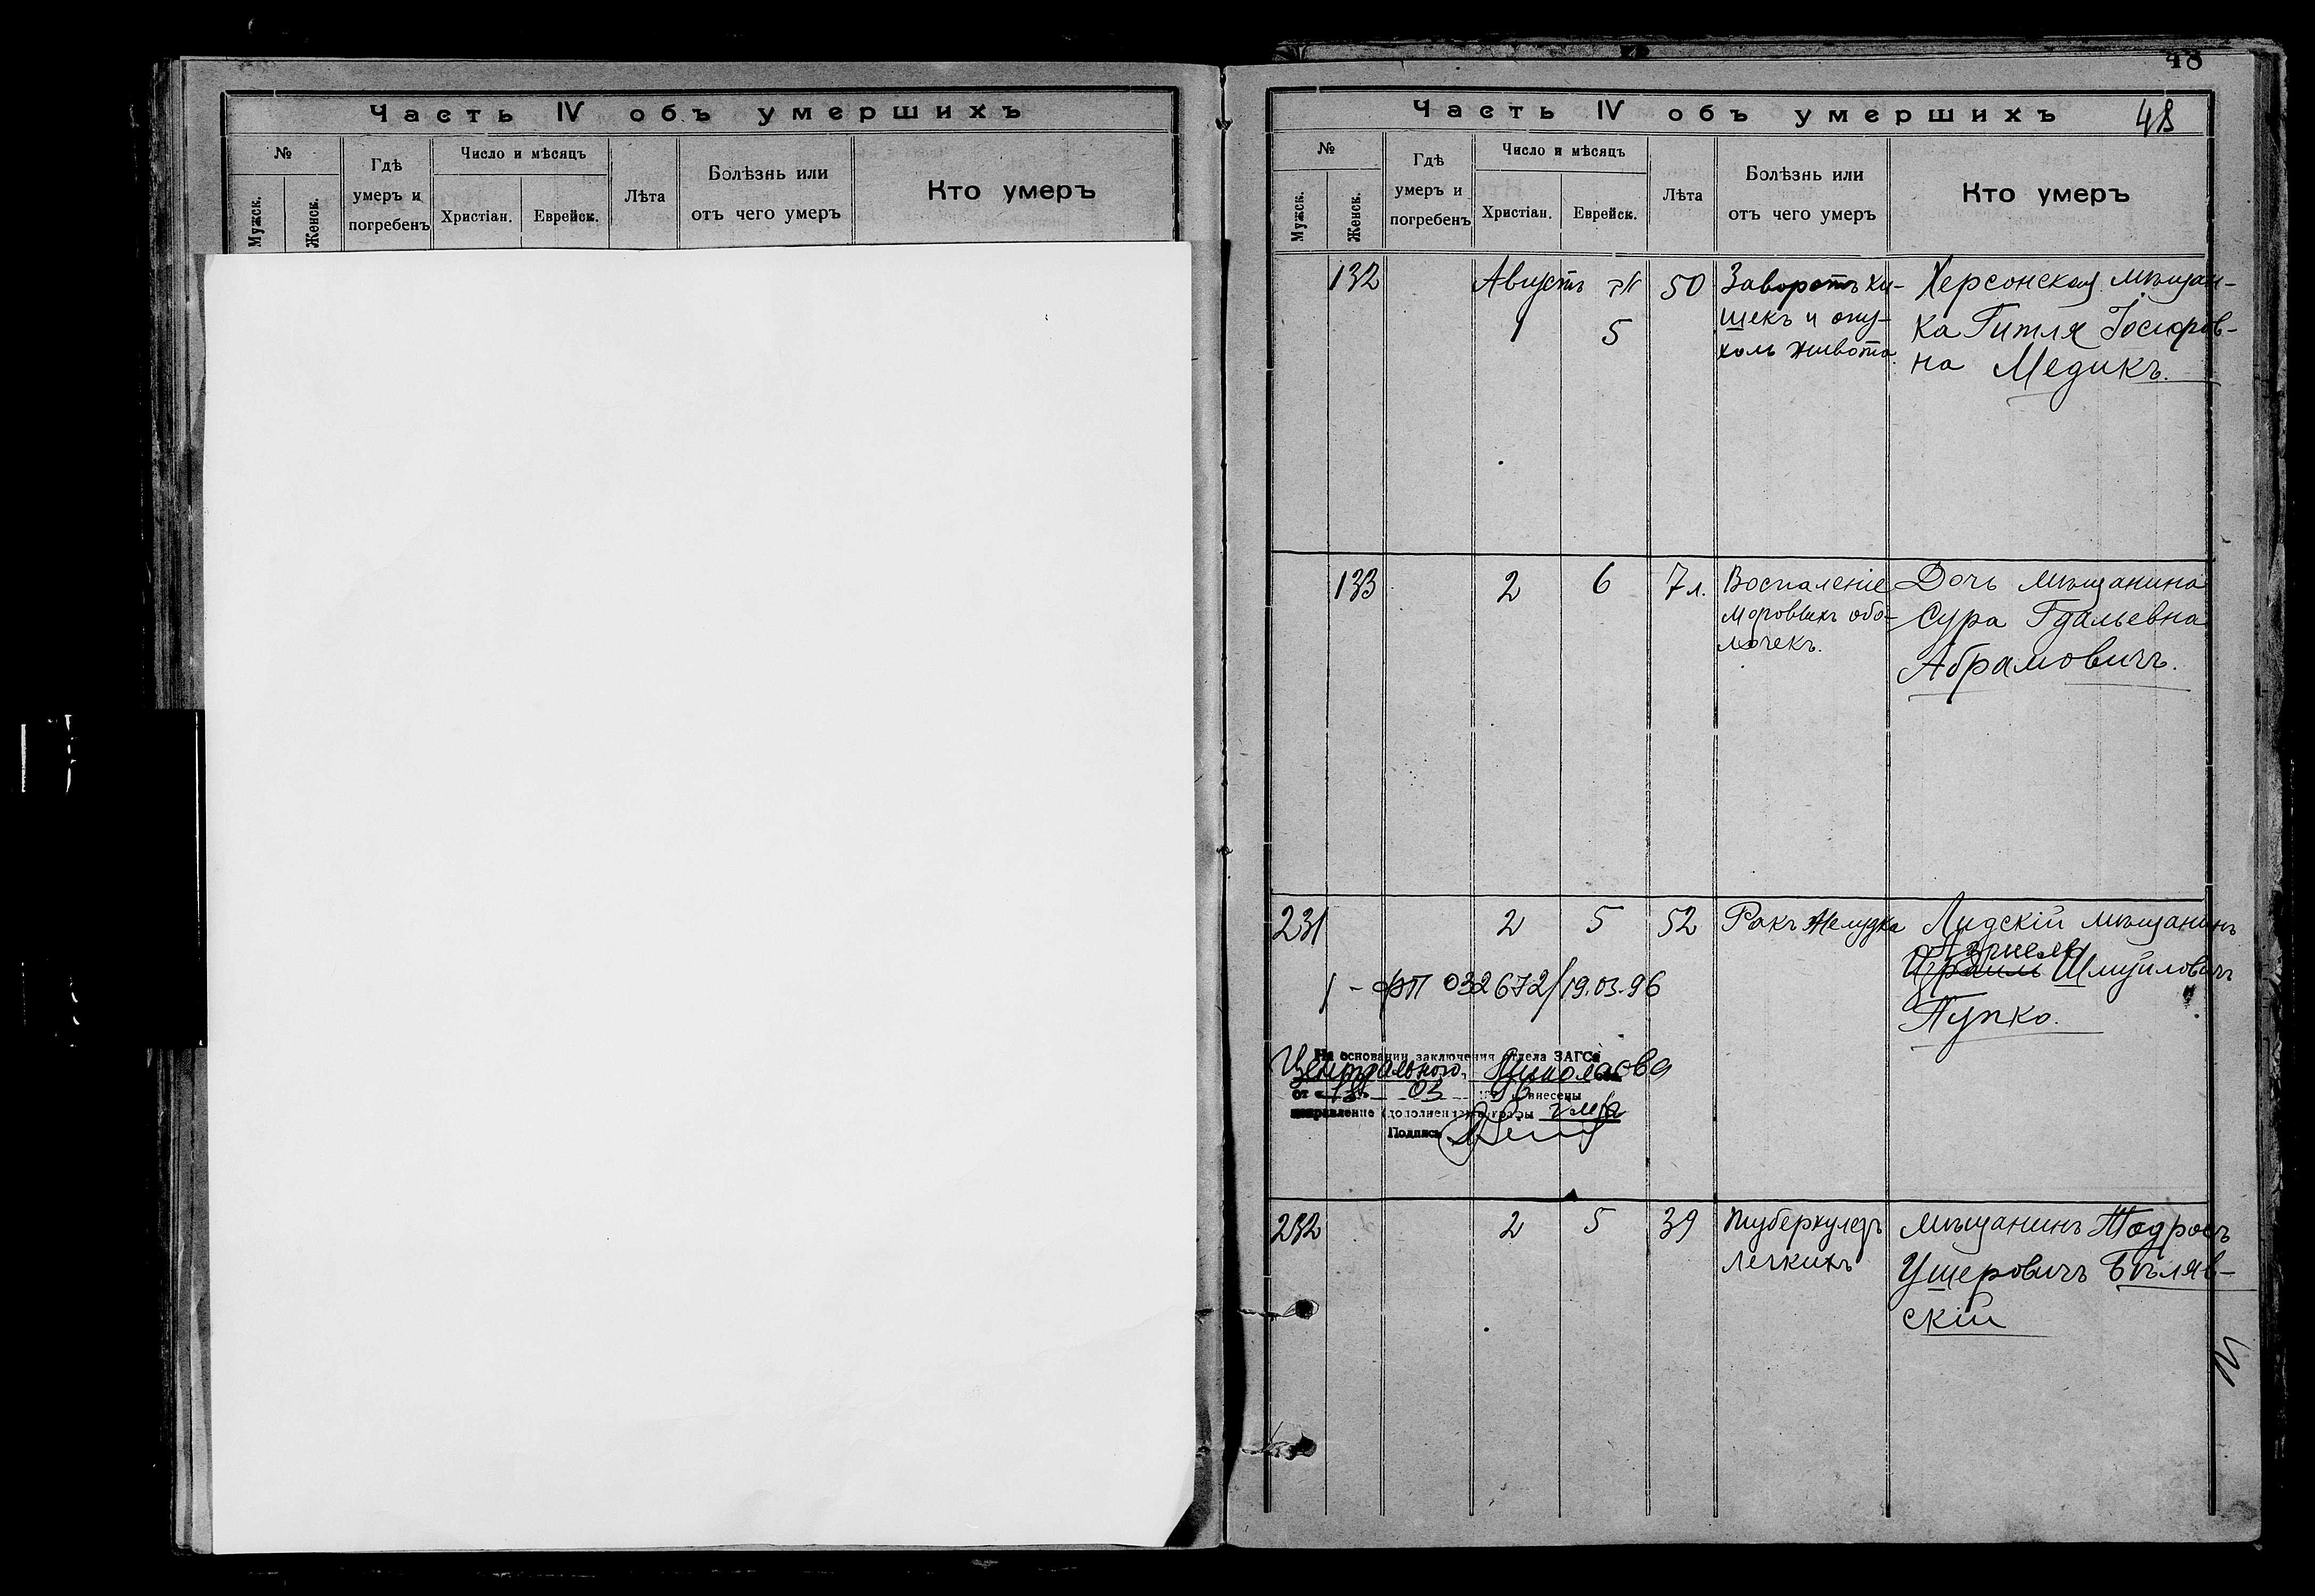 Часть IV объ умершихъ
№
Мужск.
Женск.
Гдѣ
умеръ и
погребенъ
Число и мѣсяцъ
Христіан.
Еврейск.
Лѣта
Болѣзнь или
отъ чего умеръ
Кто умеръ
48
Часть IV объ умершихъ
48
№
Мужск.
Женск.
Гдѣ
умеръ и
погребенъ
Число и мѣсяцъ
Христіан.
Еврейск.
Лѣта
Болѣзнь или
отъ чего умеръ
Кто умеръ
132
Августъ
1
אב
5
50
Заворотъ ки-
шекъ и опу-
холь живота.
Херсонская мѣщан-
ка Гитля Іосифов-
на Медикъ.
133
2
6
7 л.
Воспаленіе
мозговыхъ обо-
лочекъ.
Дочь мѣщанина
Сура Гдальевна
Абрамовичъ.
231
2
5
52
Ракъ желудка
Лидскій мѣщанинъ
Израиль Шмуйловичъ
Пупко.
1 - ФП 032672/19.03.96
На основании заключения отдела ЗАГСа
Центрального Николаева
от 03 внесены
исправление (дополнение) в графы
Подпись
232
2
5
39
Туберкулезъ
легкихъ
мѣщанинъ Тодросъ
Ушеровичъ Бѣляв-
скій